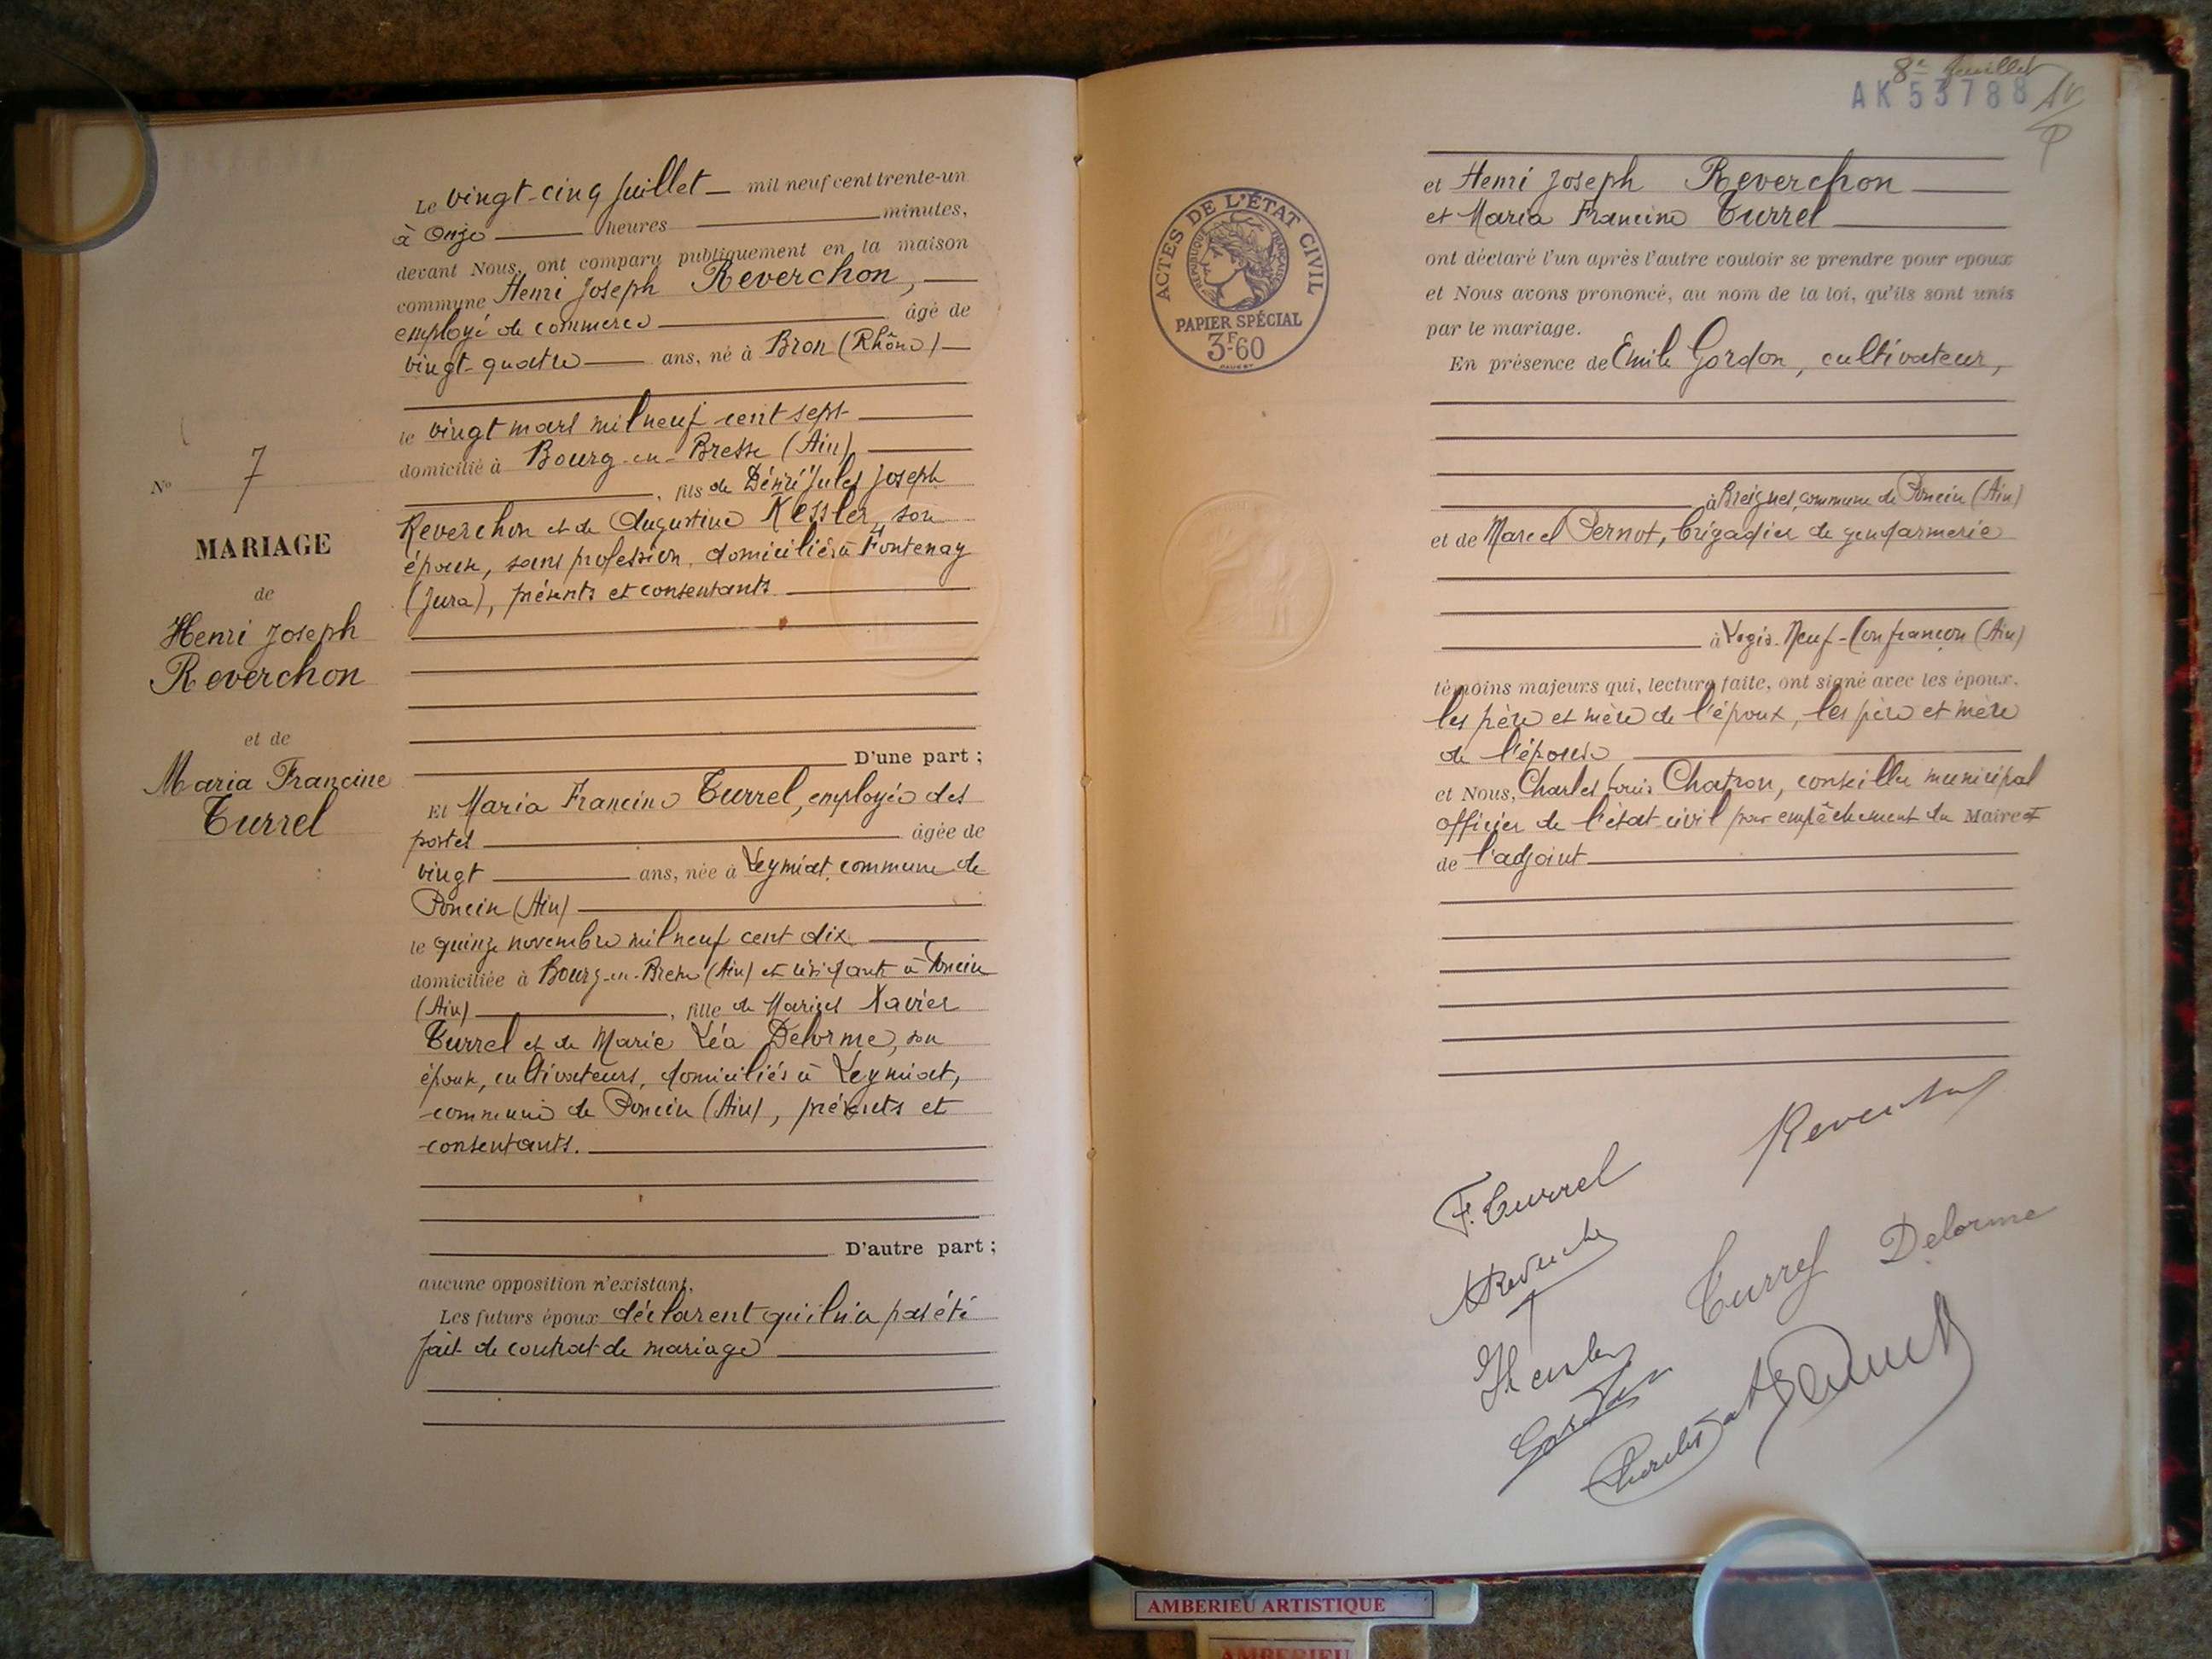 Le vingt-cinq Juillet mil neuf cent trente-un
à Onze heures minutes,
devant Nous, ont comparu publiquement en la maison
commune Henri Joseph Reverchon,
employé de commerce âgé de
vingt-quatre ans, né à Bron (Rhône)
le vingt mars mil neuf cent sept
domicilié à Bourg-en-Bresse (Ain)
, fils de Désiré Jules Joseph
Reverchon et de Augustine Kessler, son
épouse, sans profession, domiciliés à Fontenay
(Jura), présents et consentants
D'une part ;
N° 7
MARIAGE
de
Henri Joseph
Reverchon
et de
Maria Francine
Turrel
Et Maria Francine Turrel, employée des
postes âgée de
vingt ans, née à Leymiat, commune de
Poncin (Ain)
le quinze novembre mil neuf cent dix
domiciliée à Bourg-en-Bresse (Ain) et résidant à Poncin
(Ain) , fille de Marius Xavier
Turrel et de Marie Léa Delorme, son
épouse, cultivateurs, domiciliés à Leymiat,
commune de Poncin (Ain), présents et
consentants.
D'autre part ;
aucune opposition n'existant.
Les futurs époux déclarent qu'il n'a pas été
fait de contrat de mariage
8e feuillet
AK 53788
ACTES DE L'ÉTAT CIVIL
RÉPUBLIQUE FRANÇAISE
PAPIER SPÉCIAL
3F60
et Henri Joseph Reverchon
et Maria Francine Turrel
ont déclaré l'un après l'autre vouloir se prendre pour époux
et Nous avons prononcé, au nom de la loi, qu'ils sont unis
par le mariage.
En présence de Emile Gordon, cultivateur,
à Breignes, commune de Poncin (Ain)
et de Marcel Pernot, brigadier de gendarmerie
à Logis-Neuf-Confrançon (Ain)
témoins majeurs qui, lecture faite, ont signé avec les époux,
les père et mère de l'époux, les père et mère
de l'épouse
et Nous, Charles Louis Chatron, conseiller municipal
officier de l'état-civil par empêchement du Maire et
de l'adjoint
F. Turrel
Turrel Delorme
AMBERIEU ARTISTIQUE
AMBERIEU